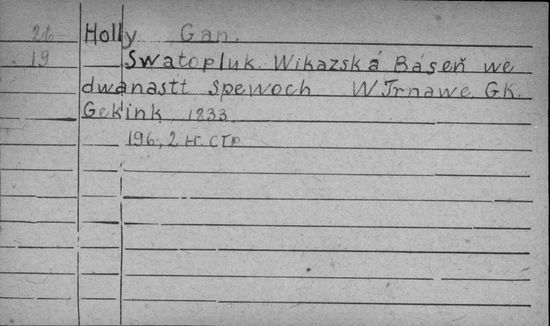 26 Holly Gan.
19 Swatopluk. Wikazská Báseň we
dwanastt spewoch W Trnawe Gk.
Gekink 1833
196, 2 н. стр